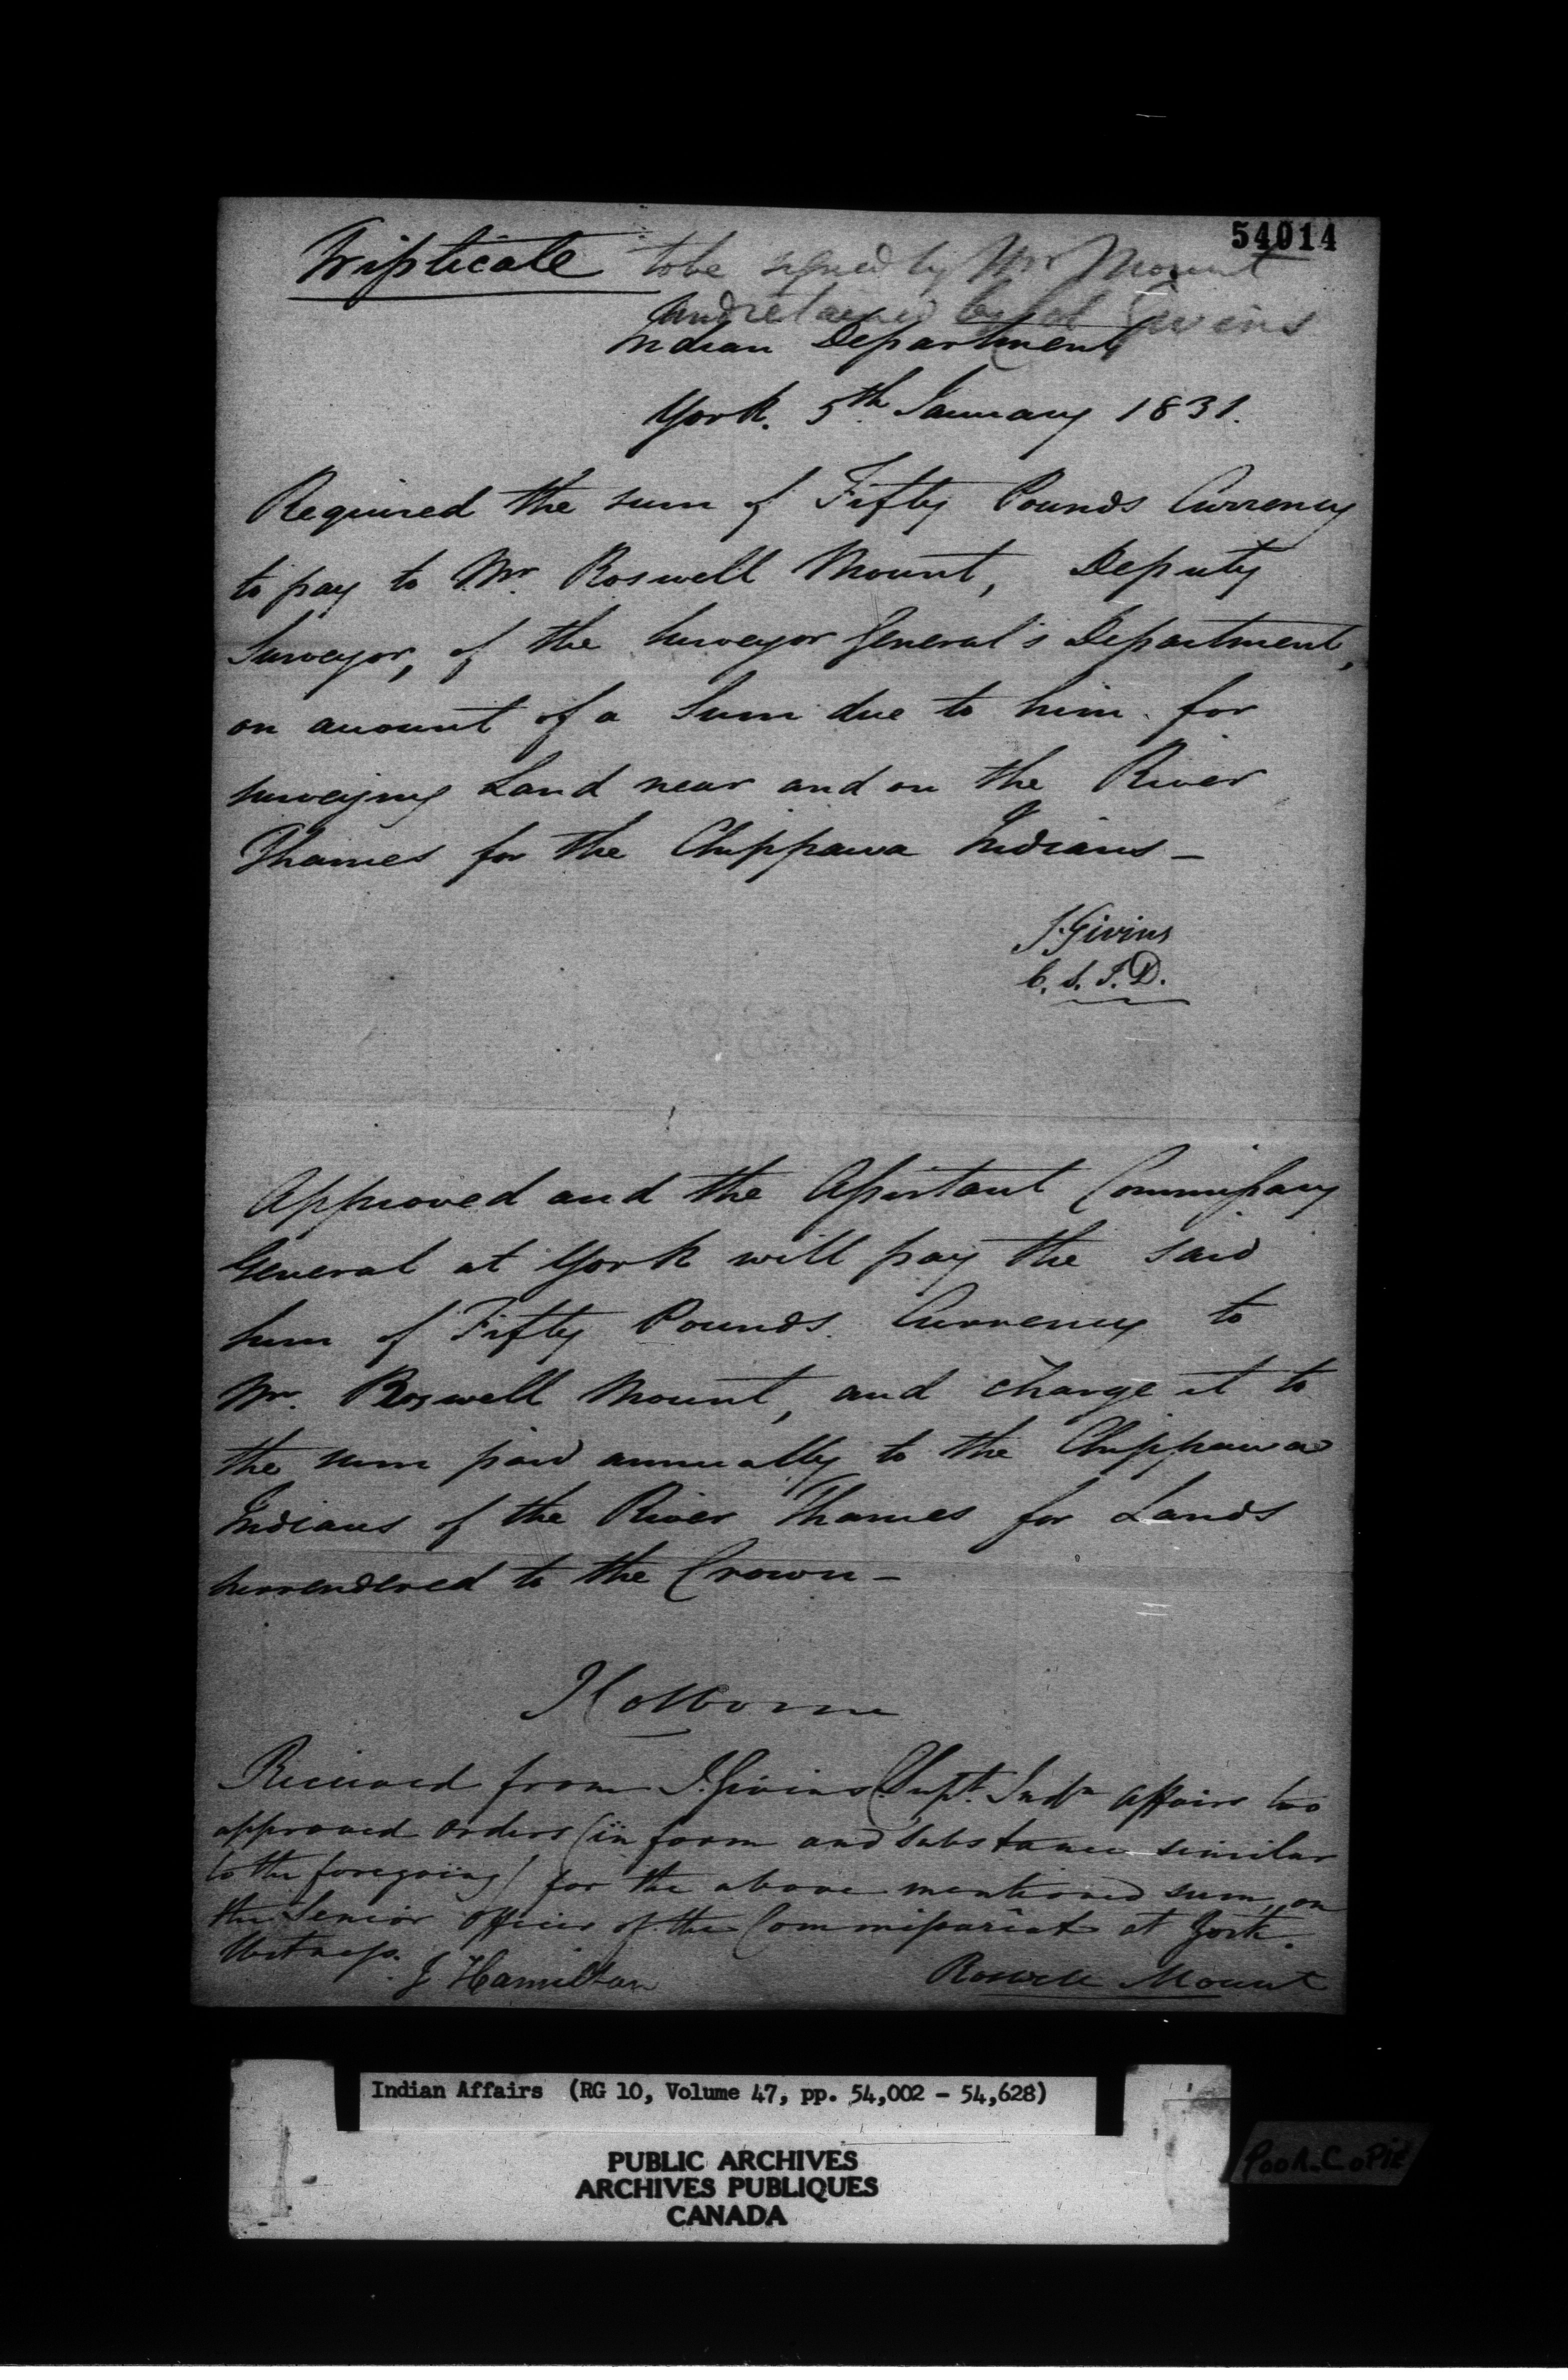 54014
Tripticate to be signed by Mr Mount
and retained by Col Givins
Indian Department
York. 5th January 1831.
Required the sum of Fifty Pounds Currency
to pay to Mr. Roswell Mount, Deputy
Surveyor, of the Surveyor General's Department,
on account of a Sum due to him for
surveying Land near and on the River
Thames for the Chippawa Indians -
J. Givins
C. S. I. D.
Approved and the Assistant Commissary
General at York will pay the said
sum of Fifty Pounds Currency to
Mr. Roswell Mount, and charge it to
the sum paid annually to the Chippawa
Indians of the River Thames for Lands
surrendered to the Crown -
J Colborne
Received from J. Givins C. Supt. Indn Affairs two
approved orders (in form and substance similar
to the foregoing) for the above mentioned sum, on
the Senior Officer of the Commissariat at York.
Witness.
J Hamilton
Roswell Mount
Indian Affairs (RG 10, Volume 47, pp. 54,002 - 54,628)
PUBLIC ARCHIVES
ARCHIVES PUBLIQUES
CANADA
Poor Copie